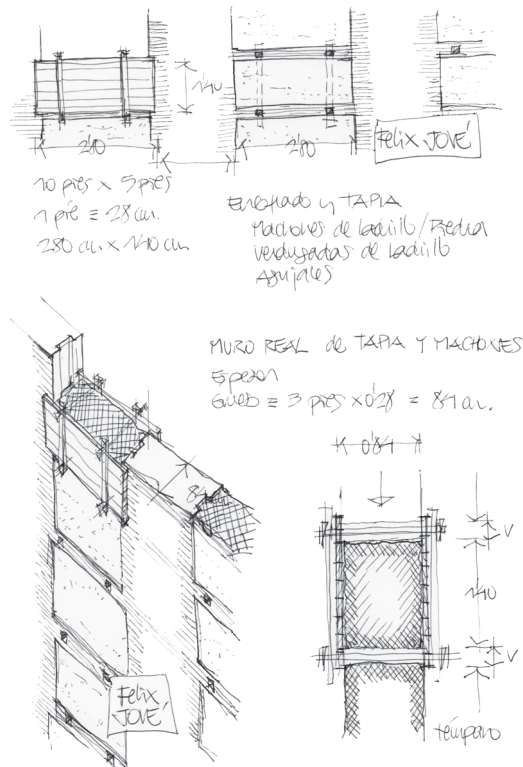 1'40
2'80
2'80
FELIX JOVÉ
10 pies x 5 pies
1 pie ≡ 28 cm.
280 cm. x 140 cm
Encofrado y TAPIA
Machones de ladrillo/Piedra
Verdugadas de ladrillo
Agujales
MURO REAL de TAPIA Y MACHONES
Espesor
≡ 3 pies x 0'28 = 84 cm.
0'84
84
V
1'40
V
Felix
JOVÉ
témpano